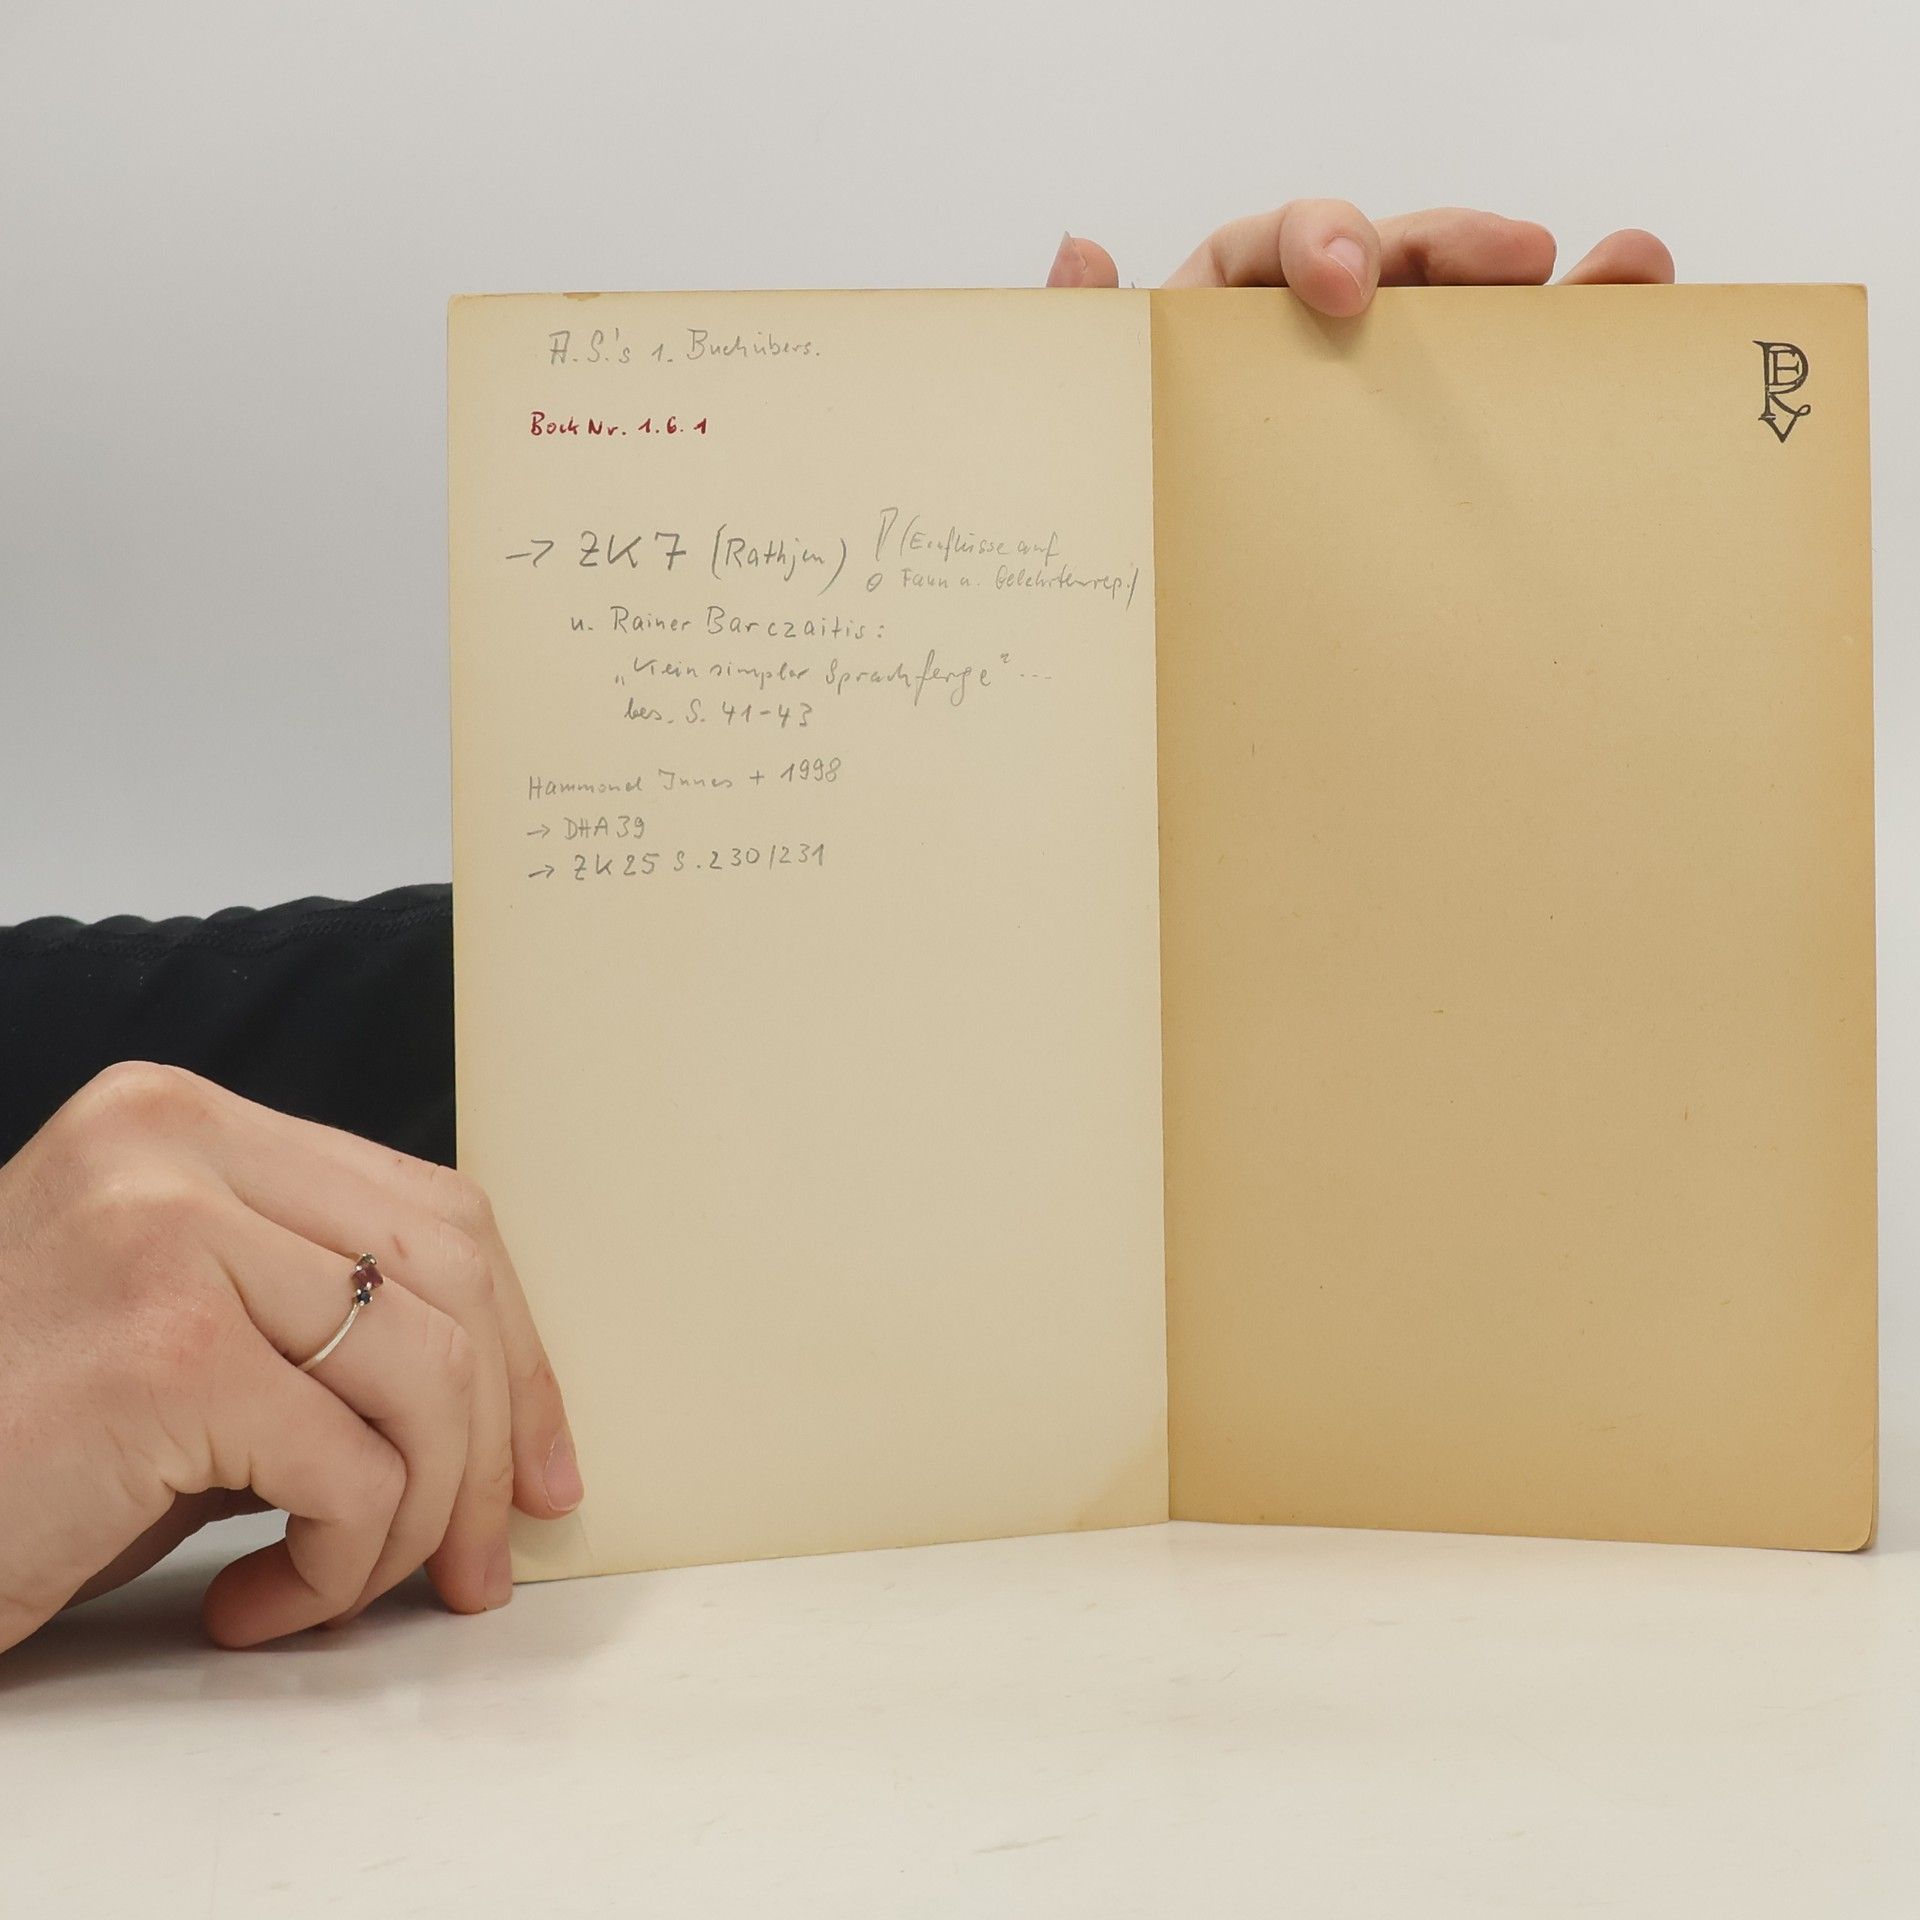 A.S.'s 1. Buchübers.
Bock Nr. 1.6.1
→ ZK 7 (Rathjen) ! (Einflüsse auf
Faun u. Gelehrtenrep.)
u. Rainer Barczaitis:
„Kein simpler Sprachferge“...
bes. S. 41-43
Hammond Innes + 1998
→ DHA 39
→ ZK 25 S. 230/231